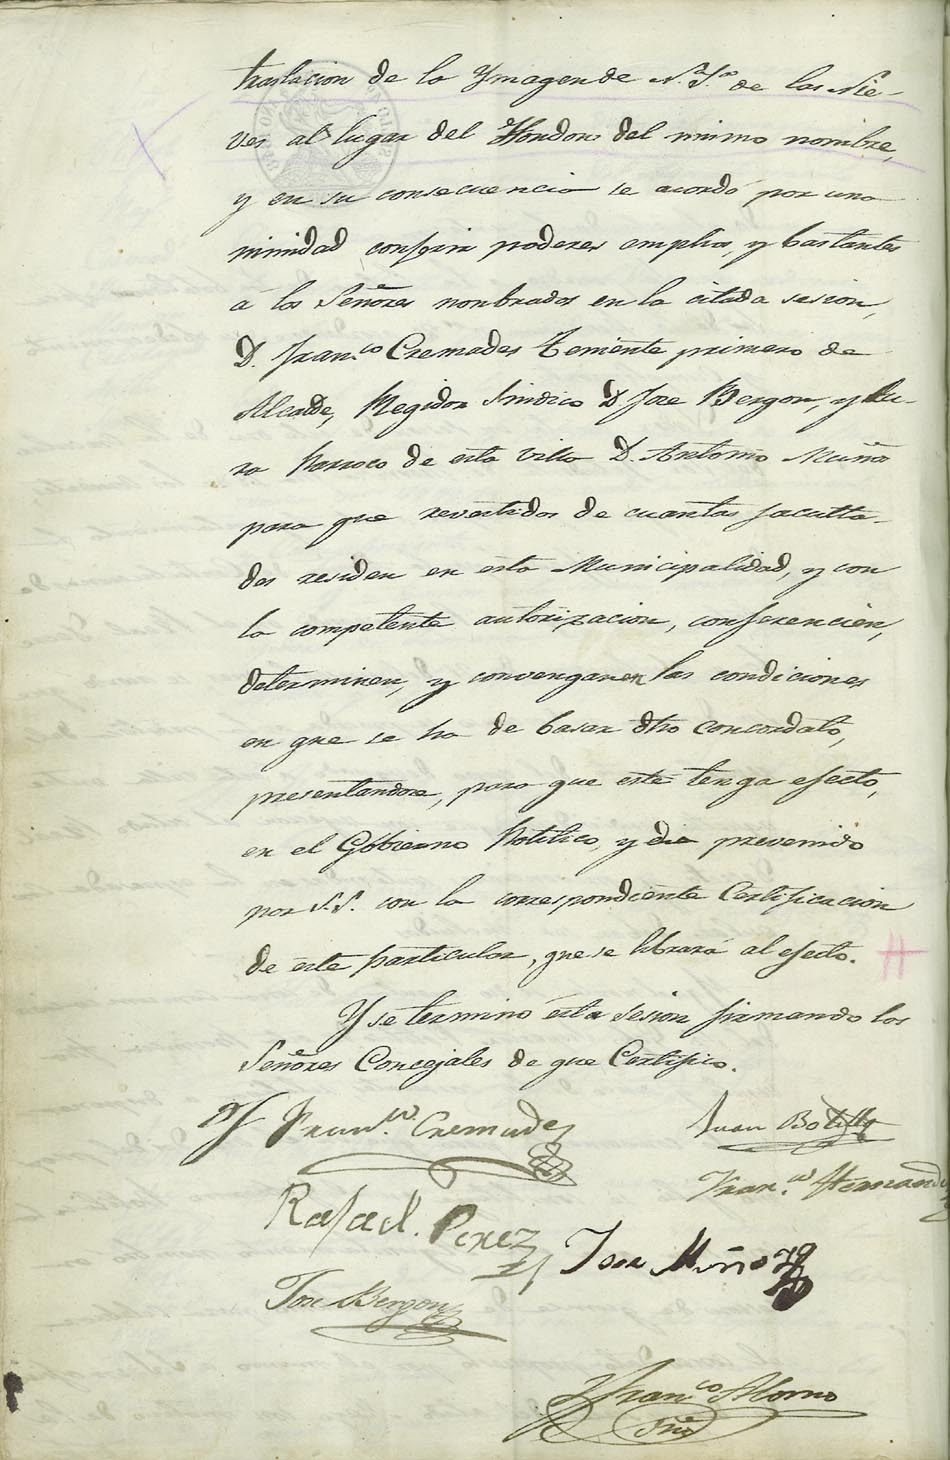 traslacion de la Ymagen de N.ª S.ª de las Nie-
ves al lugar del Hondon del mismo nombre,
y en su consecuencia se acordó por una
nimidad conferir poderes amplios, y bastantes
á los Señores nonbrados en la citada sesion,
D. Fran.co Cremades Teniente primero de
Alcalde, Regidor Sindico D. Jose Bergon, y Cu-
ra Parroco de esta villa D. Antonio Muñoz
para que revestidos de cuantas faculta-
des residen en esta Municipalidad, y con
la competente autorizacion, conferencien,
determinen, y convengan en las condiciones
en que se ha de basar dho concordato,
presentandose, para que este tenga efecto,
en el Gobierno Politico, y dia prevenido
por S.S. con la correspondiente Certificacion
de este particular, que se librará al efecto.
Y se terminó esta sesion firmando los
Señores Concejales de que Certifico.
Fran.co Cremades
Juan Botella
Fran.co Hernandez
Rafael Perez
Jose Muñoz
Jose Bergon
Fran.co Alorno
Srio